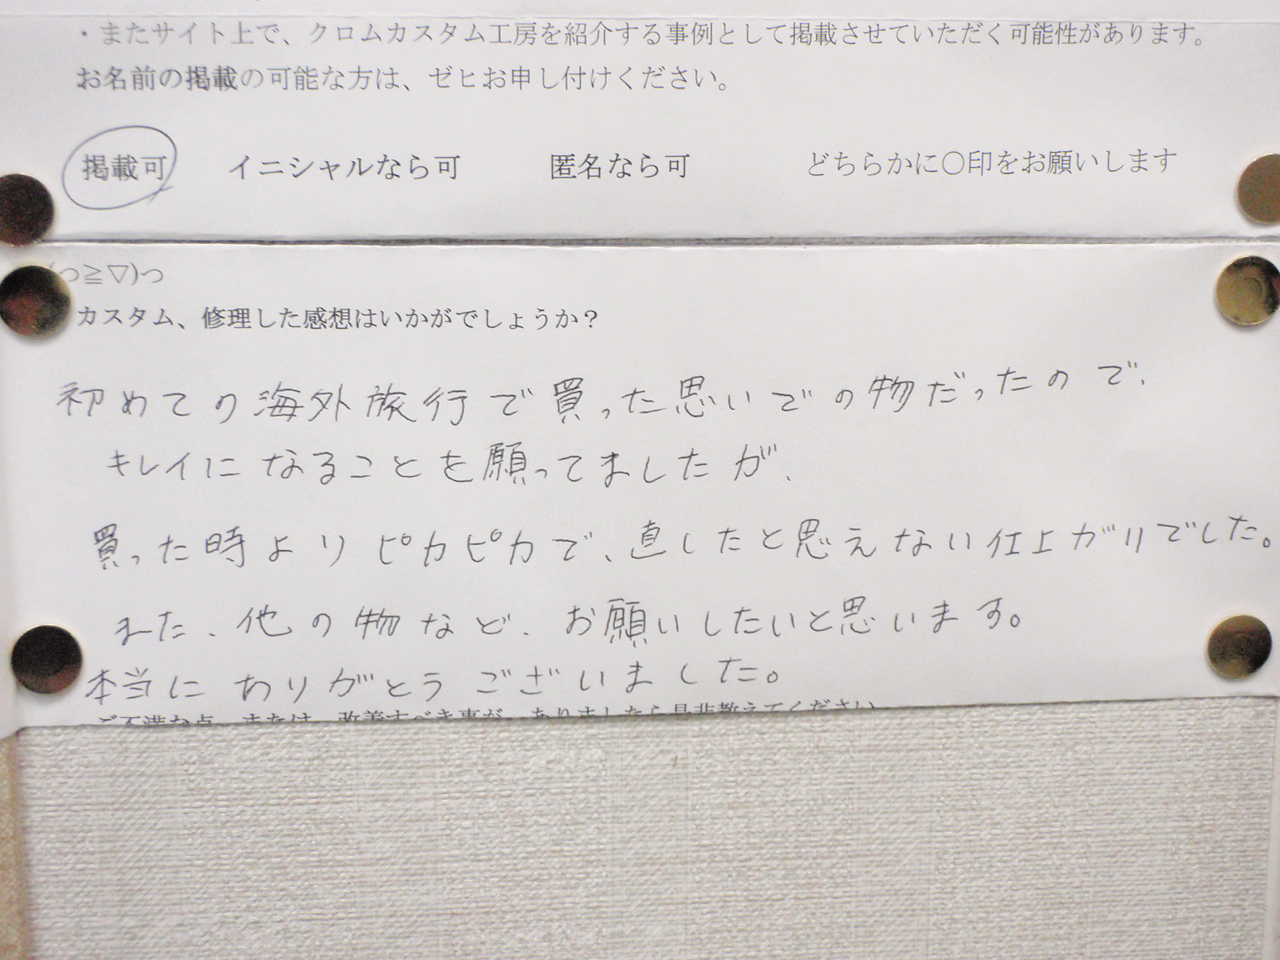 ・またサイト上で、クロムカスタム工房を紹介する事例として掲載させていただく可能性があります。
お名前の掲載の可能な方は、ゼヒお申し付けください。
掲載可 イニシャルなら可 匿名なら可 どちらかに〇印をお願いします
(っ≧▽)っ
カスタム、修理した感想はいかがでしょうか？
初めての海外旅行で買った思いでの物だったので、
キレイになることを願ってましたが、
買った時よりピカピカで、直したと思えない仕上がりでした。
また、他の物など、お願いしたいと思います。
本当にありがとうございました。
ご不満な点、または、改善すべき事が、ありましたら是非教えてください